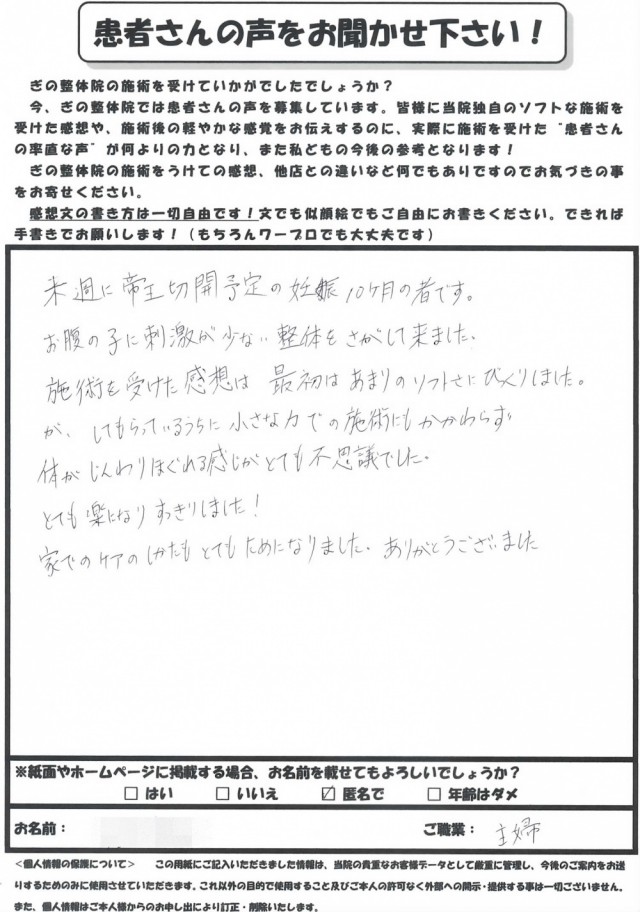 患者さんの声をお聞かせ下さい！
ぎの整体院の施術を受けていかがでしたでしょうか？
今、ぎの整体院では患者さんの声を募集しています。皆様に当院独自のソフトな施術を
受けた感想や、施術後の軽やかな感覚をお伝えするのに、実際に施術を受けた“患者さん
の率直な声”が何よりの力となり、また私どもの今後の参考となります！
ぎの整体院の施術をうけての感想、他店との違いなど何でもありですのでお気づきの事
をお寄せください。
感想文の書き方は一切自由です！文でも似顔絵でもご自由にお書きください。できれば
手書きでお願いします！（もちろんワープロでも大丈夫です）
来週に帝王切開予定の妊娠10ヶ月の者です。
お腹の子に刺激が少ない整体をさがして来ました。
施術を受けた感想は 最初はあまりのソフトさにびっくりしました。
が、してもらっているうちに小さな力での施術にもかかわらず
体がじんわりほぐれる感じがとても不思議でした。
とても楽になりすっきりしました！
家でのケアのしかたもとてもためになりました。ありがとうございました
※紙面やホームページに掲載する場合、お名前を載せてもよろしいでしょうか？
□ はい □ いいえ ☑ 匿名で □ 年齢はダメ
お名前： ご職業： 主婦
＜個人情報の保護について＞ この用紙にご記入いただきました情報は、当院の貴重なお客様データとして厳重に管理し、今後のご案内をお送
りするためのみに使用させていただきます。これ以外の目的で使用すること及びご本人の許可なく外部への開示・提供する事は一切ございません。
また、個人情報はご本人様からのお申し出により訂正・削除いたします。